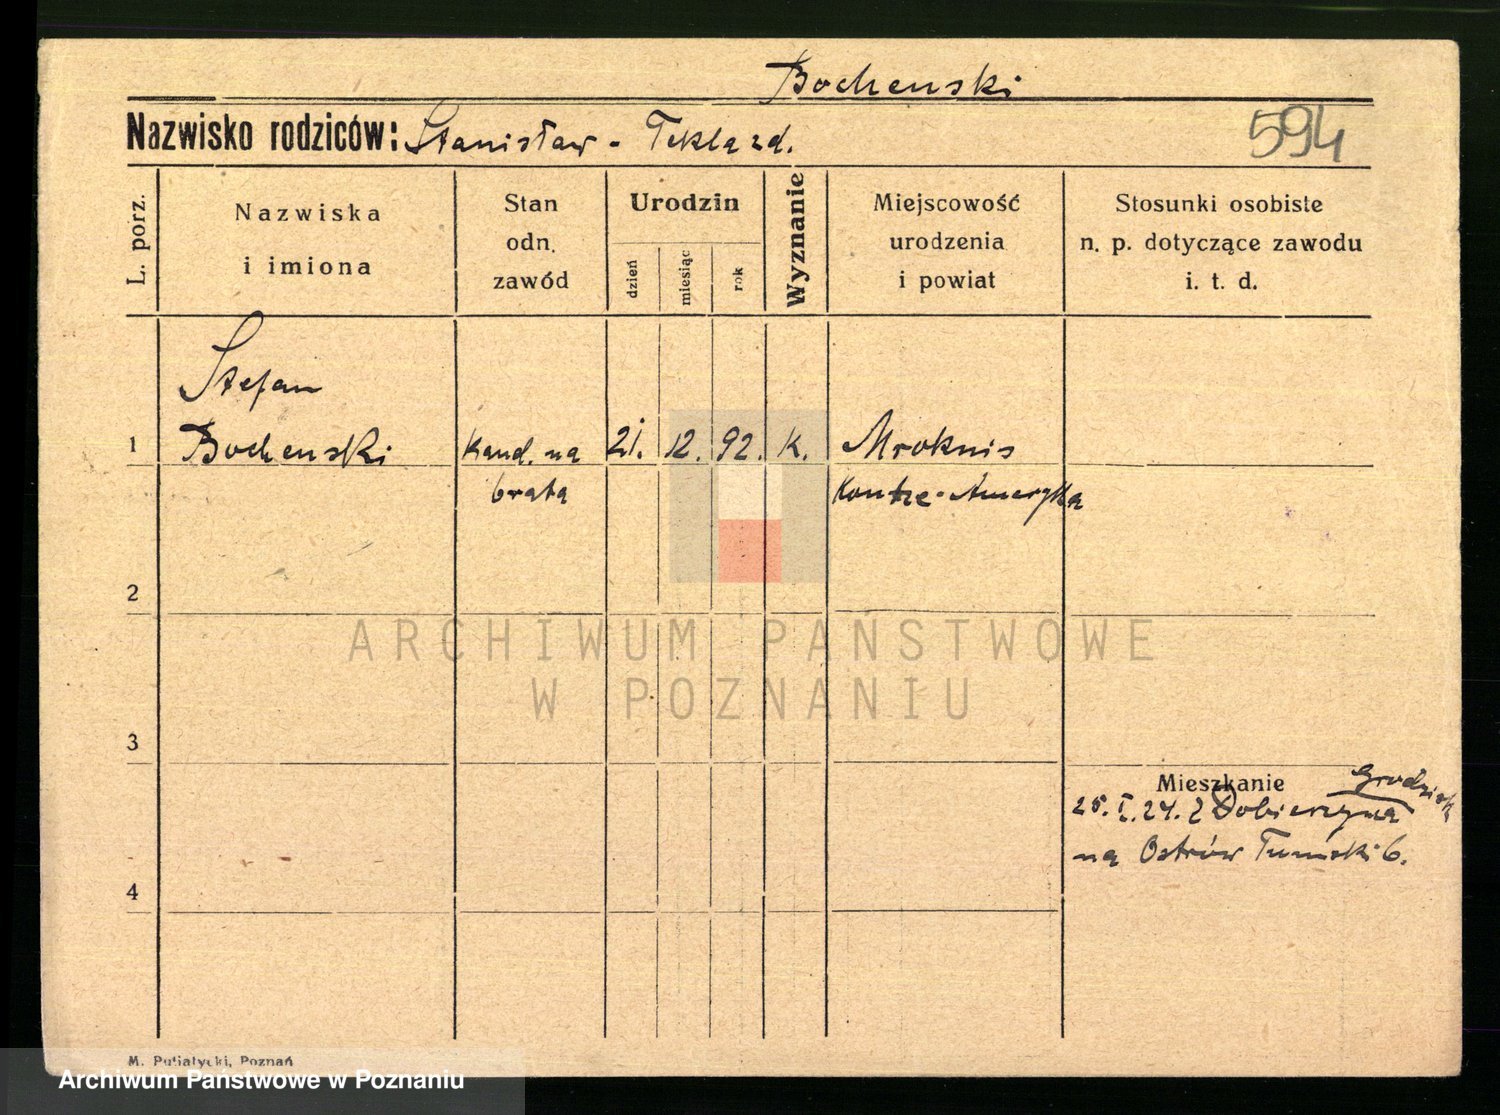 Bochenski
Nazwisko rodziców: Stanisław - Tekla zd.
594
L. porz.
Nazwiska
i imiona
Stan
odn.
zawód
Urodzin
dzień
miesiąc
rok
Wyznanie
Miejscowość
urodzenia
i powiat
Stosunki osobiste
n. p. dotyczące zawodu
i. t. d.
Stefan
1 Bochenski Kand. na 21. 12. 92. K. Mroknis
brata Kontre-Ameryka
2
ARCHIWUM PAŃSTWOWE
W POZNANIU
3
Mieszkanie Grodzisk
25. I. 24. z Dobieszyna
na Ostrów Tumski 6.
4
M. Putiatycki, Poznań
Archiwum Państwowe w Poznaniu